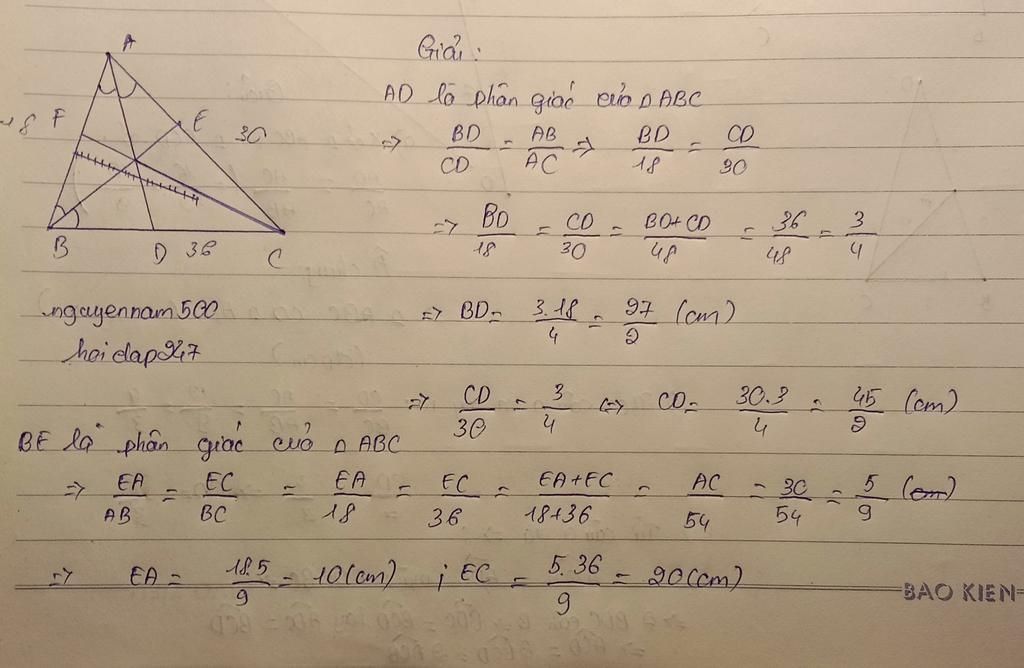 A
Giải:
AD là phân giác của △ABC
F
E
18
30
⇒ BD/CD = AB/AC ⇒ BD/18 = CD/30
⇒ BD/18 = CD/30 = BD+CD/48 = 36/48 = 3/4
B
D
36
C
nguyennam500
hoidap247
⇒ BD = 3.18/4 = 27/2 (cm)
⇒ CD/30 = 3/4 ⇔ CD = 30.3/4 = 45/2 (cm)
BE là phân giác của △ABC
⇒ EA/AB = EC/BC = EA/18 = EC/36 = EA+EC/18+36 = AC/54 = 30/54 = 5/9
⇒ EA = 18.5/9 = 10(cm) ; EC = 5.36/9 = 20(cm)
BAO KIEN